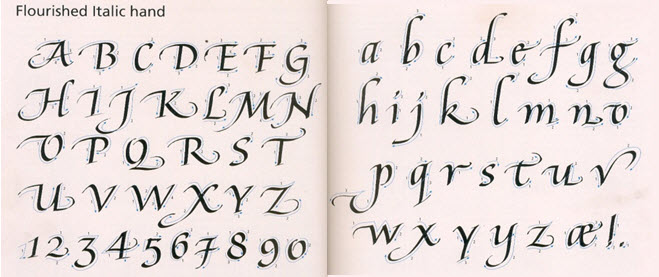 Flourished Italic hand
A B C D E F G
H I J K L M N
O P Q R S T
U V W X Y Z
1 2 3 4 5 6 7 8 9 0
a b c d e f g g
h i j k l m n o
p q r s t u v
w x y y z æ ! .